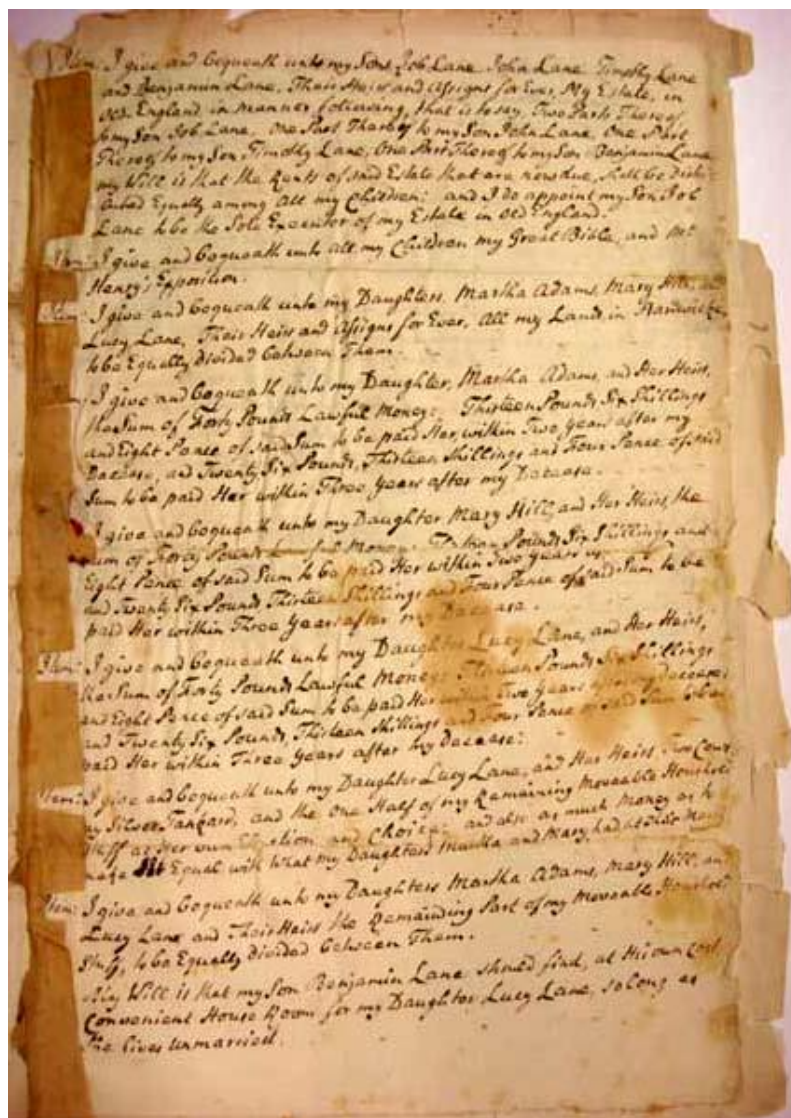 Item: I give and bequeath unto my Sons Job Lane John Lane Timothy Lane
and Benjamin Lane, Their Heirs and assigns for Ever, My Estate, in
old England in manner following, that is to say, Two Parts Thereof
to my Son Job Lane, one Part Thereof to my Son John Lane, One Part
Thereof to my Son Timothy Lane, One Part Thereof to my Son Benjamin Lane
my Will is that the Rents of said Estate that are now due, shall be Distri-
buted Equally among all my Children: and I do appoint my Son Job
Lane to be the Sole Executor of my Estate in old England.
Item: I give and bequeath unto all my Children my Great Bible, and Mr
Henry's Exposition.
Item: I give and bequeath unto my Daughters, Martha Adams, Mary Hill, and
Lucy Lane, Their Heirs and assigns for Ever, all my Lands in
to be Equally divided between Them.
I give and bequeath unto my Daughter, Martha Adams, and Her Heirs,
the Sum of Forty Pounds Lawful Money: Thirteen Pounds Six Shillings
and Eight Pence of said Sum to be paid Her, within Two years after my
Decease, and Twenty Six Pounds, Thirteen Shillings and Four Pence of said
Sum to be paid Her within Three years after my Decease.
I give and bequeath unto my Daughter Mary Hill, and Her Heirs, the
Sum of Forty Pounds Lawful Money: Pounds Six Shillings and
Eight Pence of said Sum to be paid Her within Two years
and Twenty Six Pounds Thirteen Shillings and Four Pence of said Sum to be
paid Her within Three years after my Decease.
Item: I give and bequeath unto my Daughter Lucy Lane, and Her Heirs,
the Sum of Forty Pounds Lawful Money: Thirteen Pounds Six Shillings
and Eight Pence of said Sum to be paid Her within Two years after my Decease;
and Twenty Six Pounds, Thirteen Shillings and Four Pence of said Sum to be
paid Her within Three years after my Decease:
Item: I give and bequeath unto my Daughter Lucy Lane, and Her Heirs Two Cows
my Silver Tankard, and the one Half of my Remaining Moveable Household
Stuff at Her own Election and Choice: and also as much money as to
make Equal with what my Daughters Martha and Mary, had at
Item: I give and bequeath unto my Daughters Martha Adams, Mary Hill, and
Lucy Lane and Their Heirs the Remaining Part of my Moveable Household
Stuff, to be Equally divided between Them.
My Will is that my Son Benjamin Lane should find, at His own Cost
Convenient House Room for my Daughter Lucy Lane, so long as
She lives unmarried.